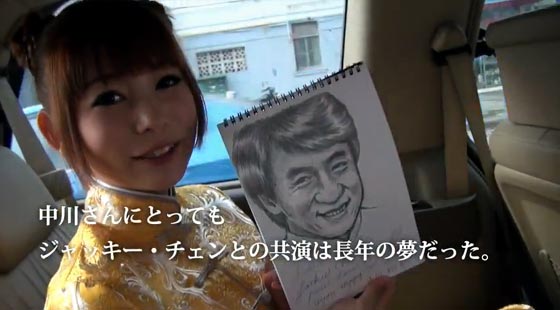 中川さんにとっても
ジャッキー・チェンとの共演は長年の夢だった。